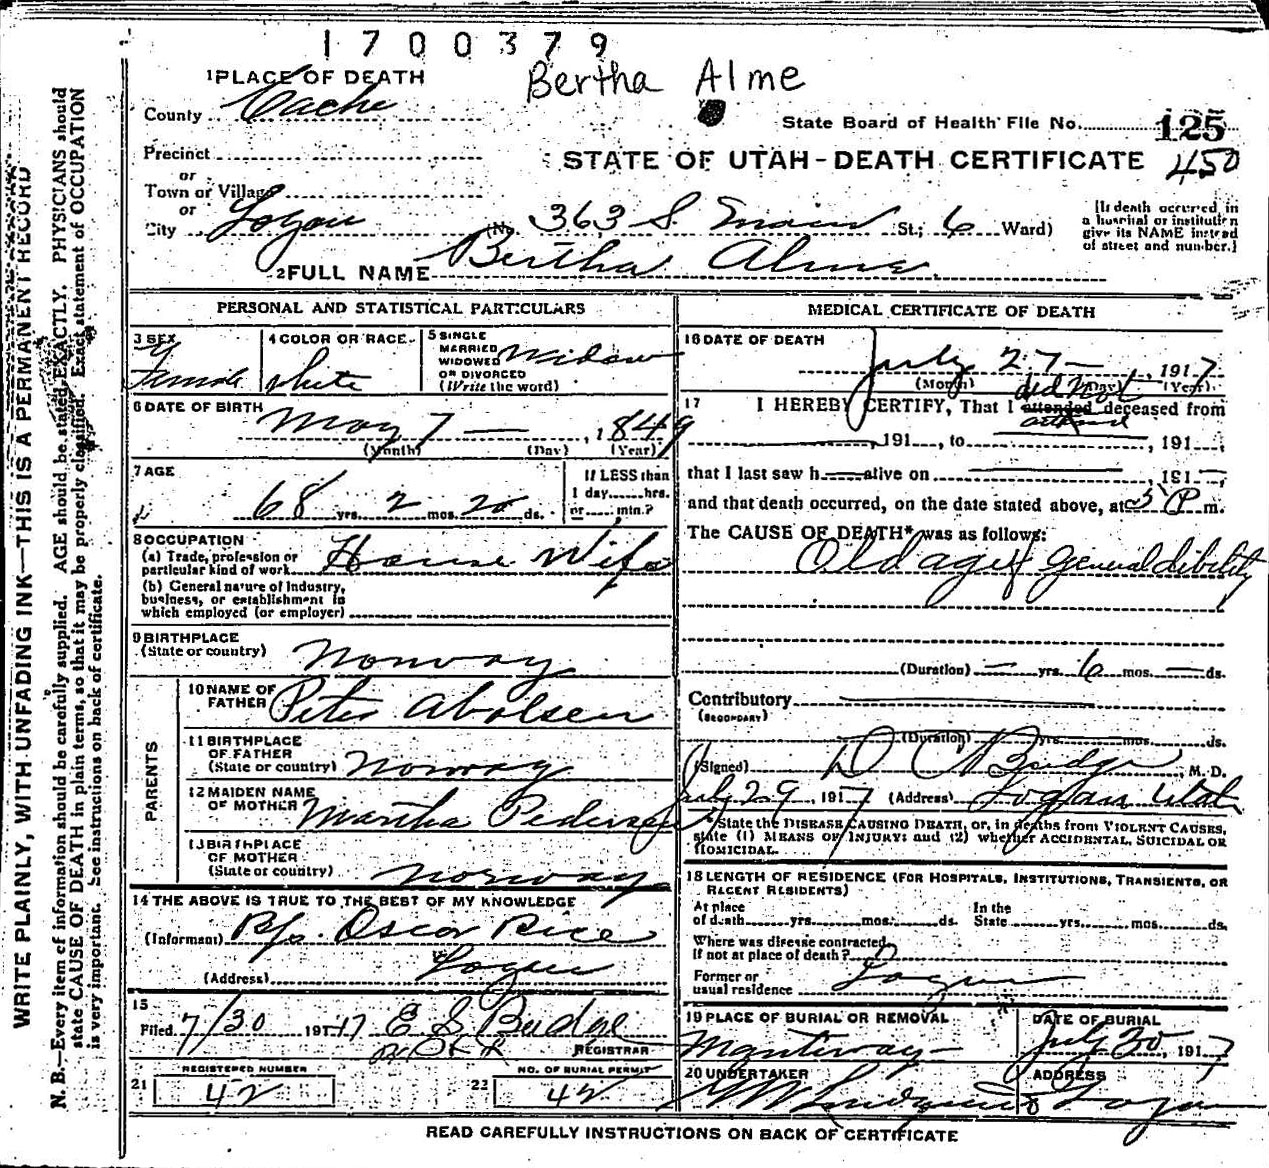 1700379
Bertha Alme
1 PLACE OF DEATH
County Cache
State Board of Health File No. 125
Precinct
STATE OF UTAH-DEATH CERTIFICATE 450
or
Town or Village
or
City Logan (No. 363 S. Main St.; 6 Ward)
[If death occurred in a hospital or institution give its NAME instead of street and number.]
2 FULL NAME Bertha Alme
PERSONAL AND STATISTICAL PARTICULARS
3 SEX Female
4 COLOR OR RACE White
5 SINGLE MARRIED WIDOWED OR DIVORCED (Write the word) Widow
6 DATE OF BIRTH May 7 — , 1849
(Month) (Day) (Year)
7 AGE 68 yrs. 2 mos. 20 ds.
If LESS than 1 day......hrs. or......min.?
8 OCCUPATION
(a) Trade, profession or particular kind of work House Wife
(b) General nature of Industry, business, or establishment in which employed (or employer)
9 BIRTHPLACE
(State or country) Norway
PARENTS
10 NAME OF FATHER Peter Abolsen
11 BIRTHPLACE OF FATHER (State or country) Norway
12 MAIDEN NAME OF MOTHER Martha Pedersen
13 BIRTHPLACE OF MOTHER (State or country) Norway
14 THE ABOVE IS TRUE TO THE BEST OF MY KNOWLEDGE
(Informant) Bp. Oscar Rice
(Address) Logan
15
Filed 7/30 191 17 E S Budge
REGISTRAR
REGISTERED NUMBER
21 42
NO. OF BURIAL PERMIT
22 42
MEDICAL CERTIFICATE OF DEATH
16 DATE OF DEATH
July 27 — , 1917
(Month) (Day) (Year)
17 I HEREBY CERTIFY, That I attended did not attend deceased from
, 191 , to , 191
that I last saw h alive on , 191
and that death occurred, on the date stated above, at 5 P m.
The CAUSE OF DEATH* was as follows:
Old age & general dibility
(Duration) — yrs. 6 mos. — ds.
Contributory
(SECONDARY)
(Duration) yrs. mos. ds.
(Signed) D C Budge, M. D.
July 29, 1917 (Address) Logan Utah
*State the DISEASE CAUSING DEATH, or, in deaths from VIOLENT CAUSES, state (1) MEANS OF INJURY; and (2) whether ACCIDENTAL, SUICIDAL OR HOMICIDAL.
18 LENGTH OF RESIDENCE (FOR HOSPITALS, INSTITUTIONS, TRANSIENTS, OR RECENT RESIDENTS)
At place of death......yrs......mos......ds. In the State......yrs......mos......ds.
Where was disease contracted, If not at place of death?
Former or usual residence Logan
19 PLACE OF BURIAL OR REMOVAL
DATE OF BURIAL
July 30, 1917
20 UNDERTAKER
ADDRESS
Logan
READ CAREFULLY INSTRUCTIONS ON BACK OF CERTIFICATE
WRITE PLAINLY, WITH UNFADING INK—THIS IS A PERMANENT RECORD
N. B.—Every item of information should be carefully supplied. AGE should be stated EXACTLY. PHYSICIANS should
state CAUSE OF DEATH in plain terms, so that it may be properly classified. Exact statement of OCCUPATION
is very important. See instructions on back of certificate.